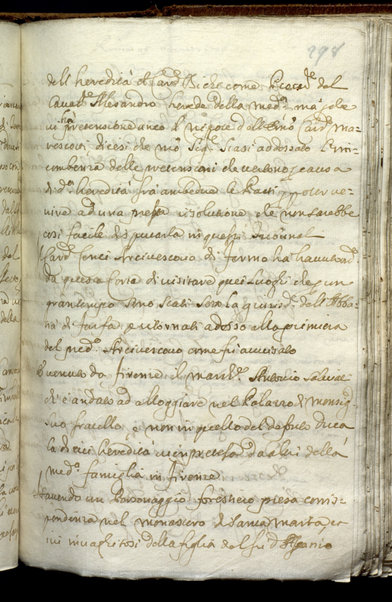 298
dell heredità et Card. Bichi come herede del
Caval.r Alesandro herede della med.ma mà, che
vi pretensione anco l nipote dell Em.o Card. Ma-
rescotti dicesi che mo Sig.r Scasi adossato l in-
combenza delle pretensioni che verbono causa
di d.a heredità frà ambedue le Parti potesse ve-
nire ad una resolutione che non sarebbe
così facile di spuntarla in questi Tribunal
Card. Cenci Arcivescovo di fermo ha havuto ord.
da questa Corte di visitare quei luoghi che p un
gran tempo sono stati sotto la giurisd. dell Abba-
tia di farfa, e ritornati adesso alla primiera
del pred.o Arcivescovo come fu avvisato
Venuto da firenze il March. Antonio Salviati
di è andato ad alloggiare nel Palazzo di monsig.
suo fratello, e non in quello del defonto Duca
la di cui heredità vien pretesa da altri della
med.a famiglia in firenze
Havendo un Personaggio forestiero presa corris-
pondenza nel monastero di Santa Marta et
ivi invaghitosi della figlia del fu d. Ascanio